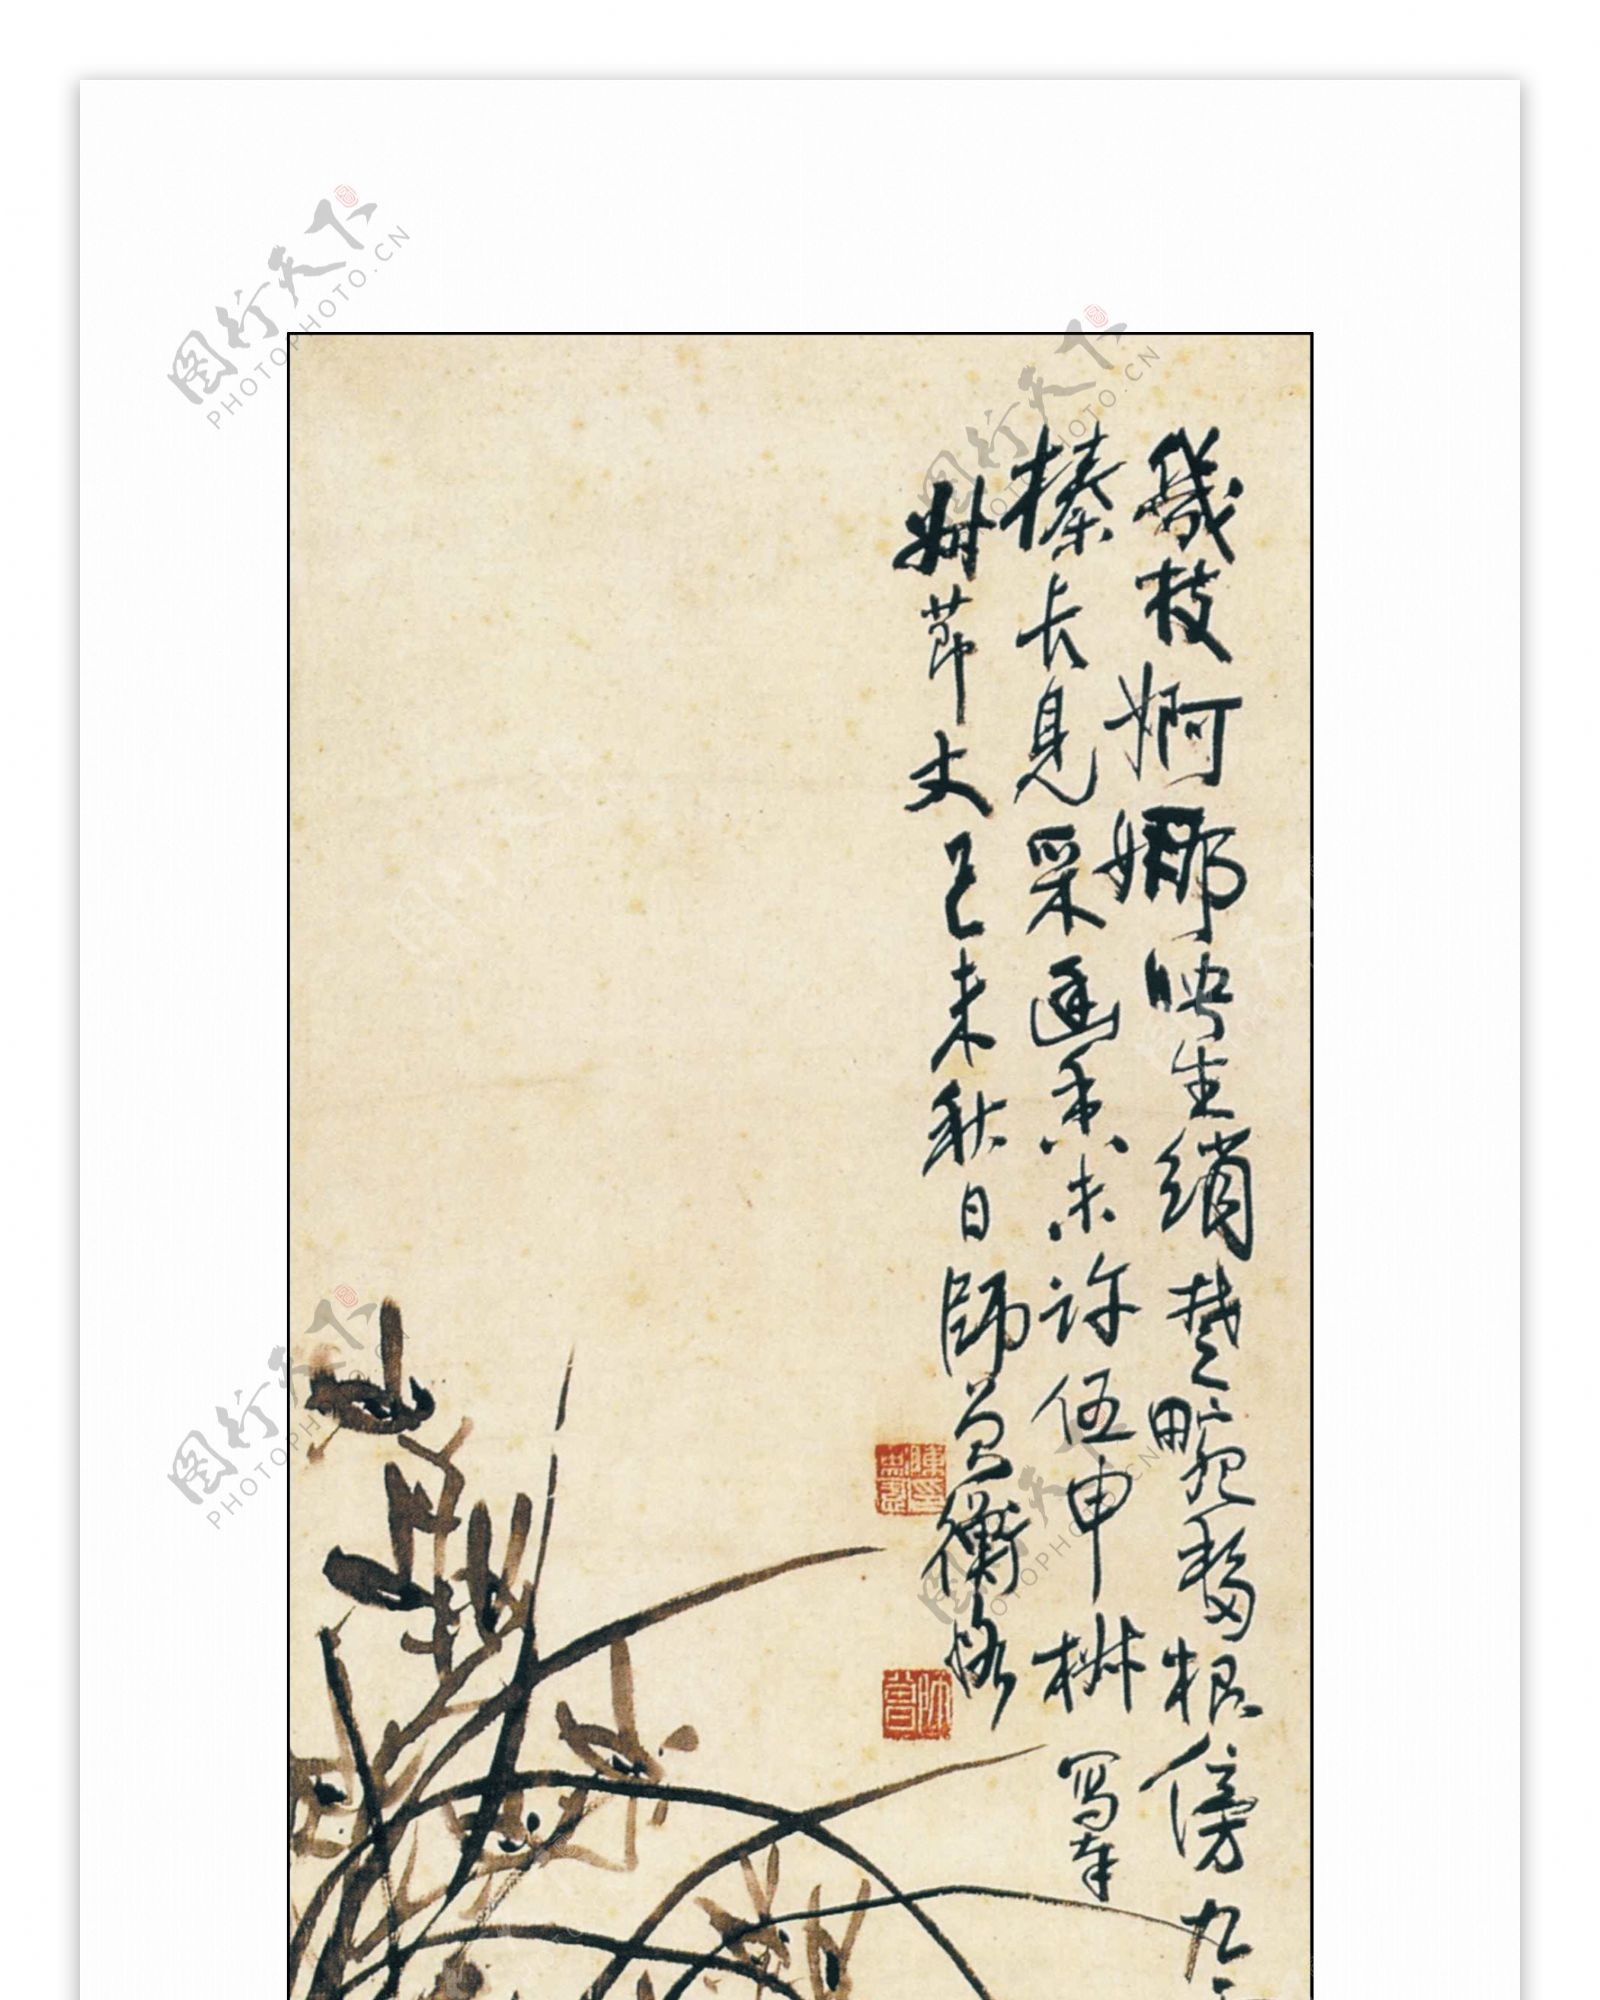 幾枝婀娜映生綃楚畹移根傍九
榛長見采遙香未許伍申椒 寫奉
叔節丈 己未秋日師曾衡恪
图行天下
PHOTOPHOTO.CN
图行天下
PHOTOPHOTO.CN
图行天下
PHOTOPHOTO.CN
图行天下
PHOTOPHOTO.CN